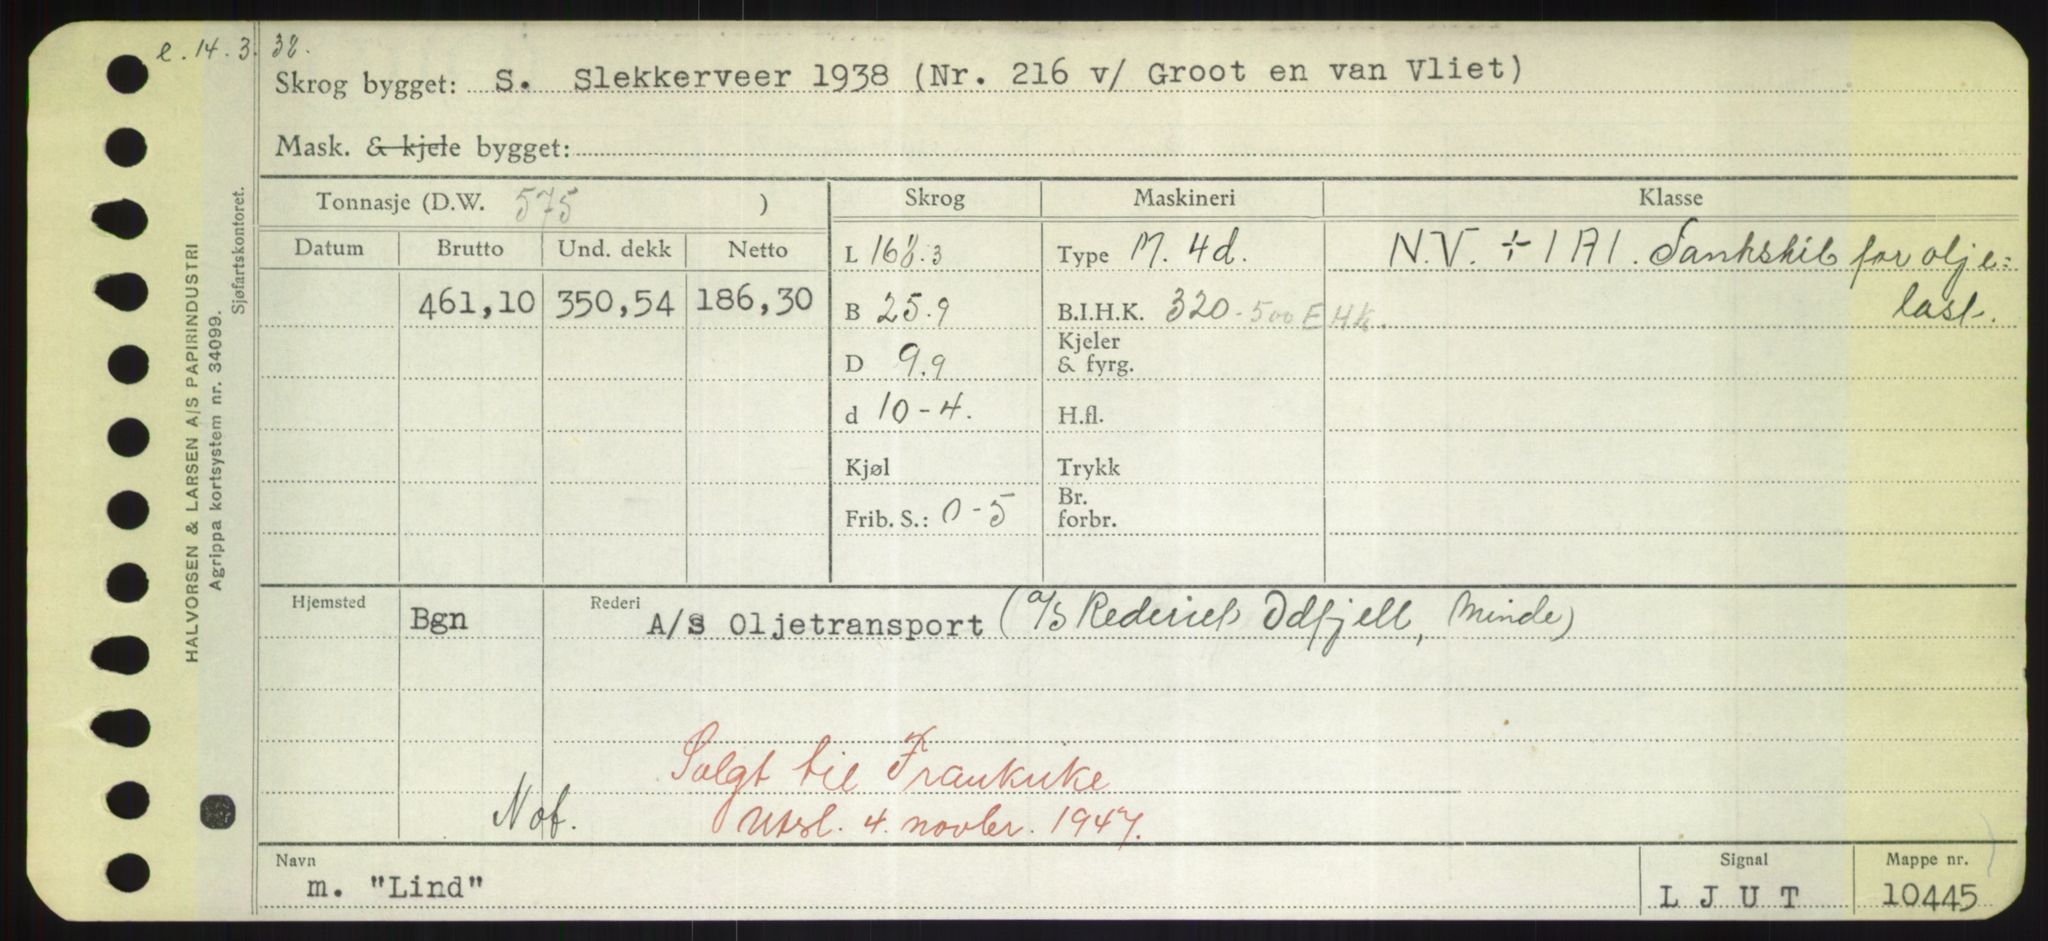 e. 14. 3. 38.
Skrog bygget: S. Slekkerveer 1938 (Nr. 216 v/ Groot en van Vliet)
Mask. & kjele bygget:
Tonnasje (D.W. 575 )
Skrog
Maskineri
Klasse
Datum Brutto Und. dekk Netto
461,10 350,54 186,30
L 168.3
B 25.9
D 9.9
d 10-4.
Kjøl
Frib. S.: 0-5
Type M. 4d.
B.I.H.K. 320 - 500 EHk.
Kjeler
& fyrg.
H.fl.
Trykk
Br.
forbr.
N.V. ÷ 1A1. Tankskib for olje=
last.
Hjemsted Bgn Rederi A/S Oljetransport (a/s Rederiet Odfjell, Minde)
Solgt til Frankrike
Utsl. 4. novbr. 1947.
Not.
Navn
m. "Lind"
Signal
L J U T
Mappe nr.
10445
HALVORSEN & LARSEN A/S PAPIRINDUSTRI
Agrippa kortsystem nr. 34099.
Sjøfartskontoret.